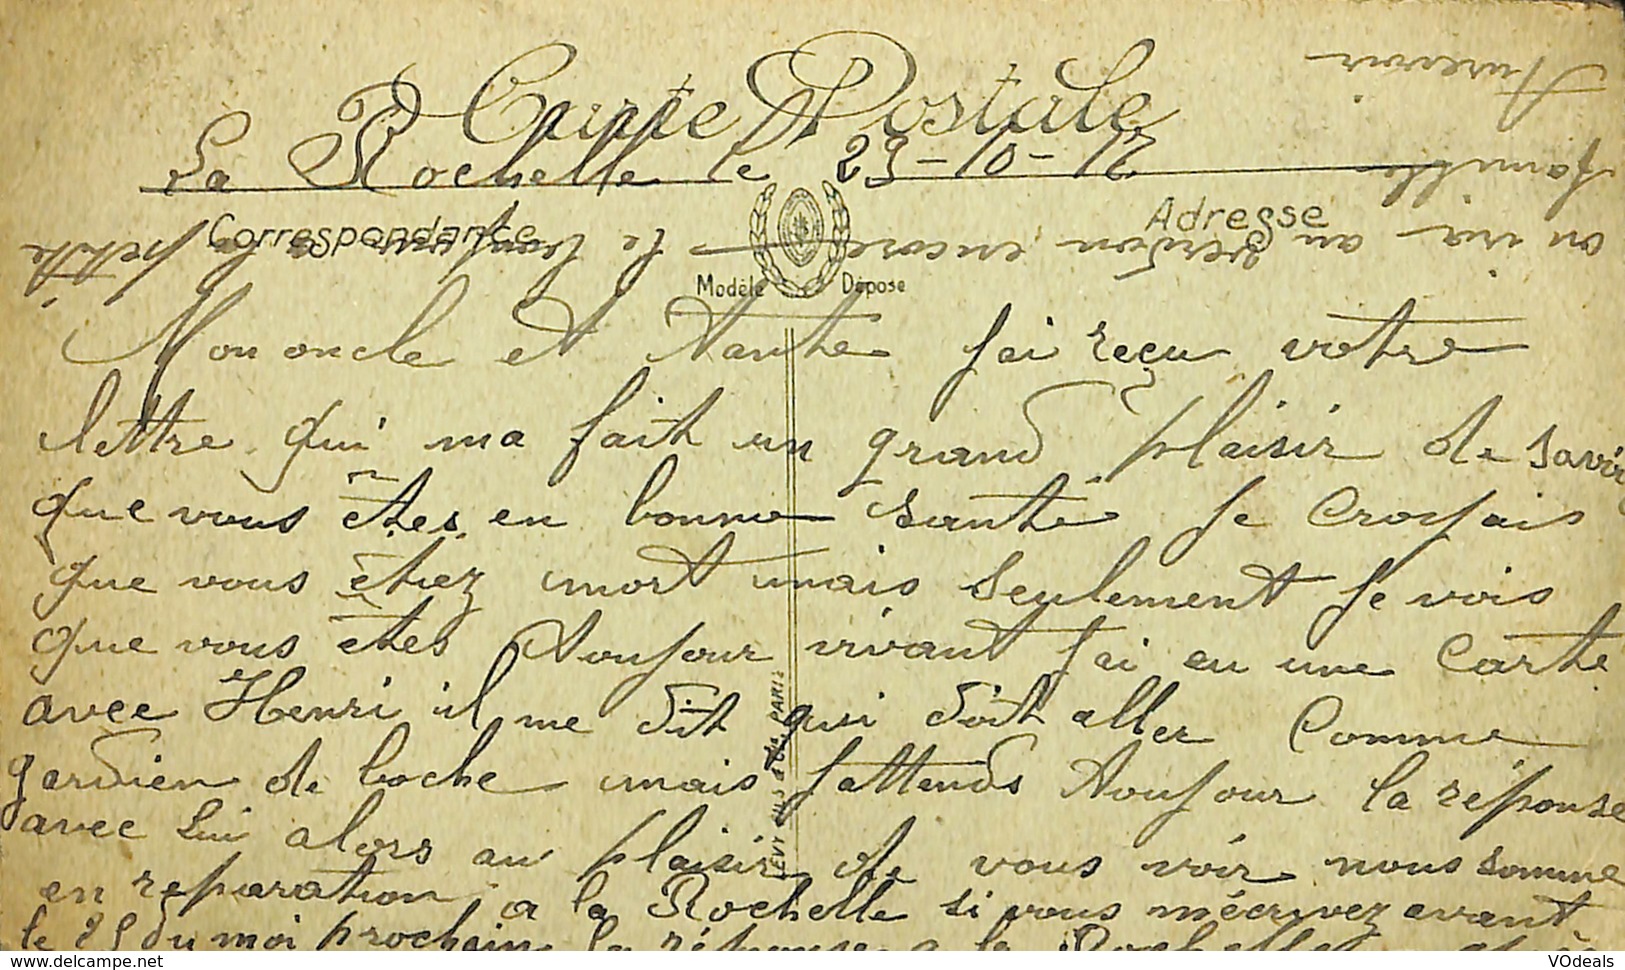 Carte Postale
La Rochelle le 29-10-17
Correspondance
Adresse
Modèle Déposé
Mon oncle et tante J'ai reçu votre
lettre qui ma fait un grand plaisir de savoir
que vous êtes en bonne santé Je croyais
que vous êtiez mort mais seulement Je vois
que vous êtes toujour vivant J'ai eu une carte
avec Henri il me dit qui doit aller Comme
gardien de boche mais J'attends toujour la réponse
avec lui alors au plaisir de vous voir nous somme
en réparation a la Rochelle si vous m'écrivez avant
le 25 du moi prochain la réponse a la Rochelle
LEVY FILS & Cie PARIS
au encore le petite
famille
Aurevoir
VOdeals
delcampe.net